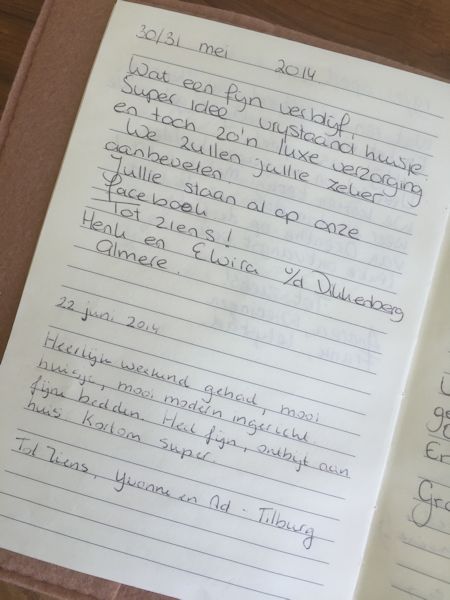 30/31 mei 2014
Wat een fijn verblijf,
Super idee vrystaand huisje.
en toch zo'n luxe verzorging
We zullen jullie zeker
aanbevelen
Jullie staan al op onze
facebook
Tot ziens!
Henk en Elwira v/d
Almere.
22 juni 2014
Heerlijk weekend gehad, mooi
huisje, mooi modern ingericht.
fijne bedden. Heel fijn, ontbijt aan
huis Kortom super.
Tot Ziens, Yvonne en Ad - Tilburg
ge
Er
Gro